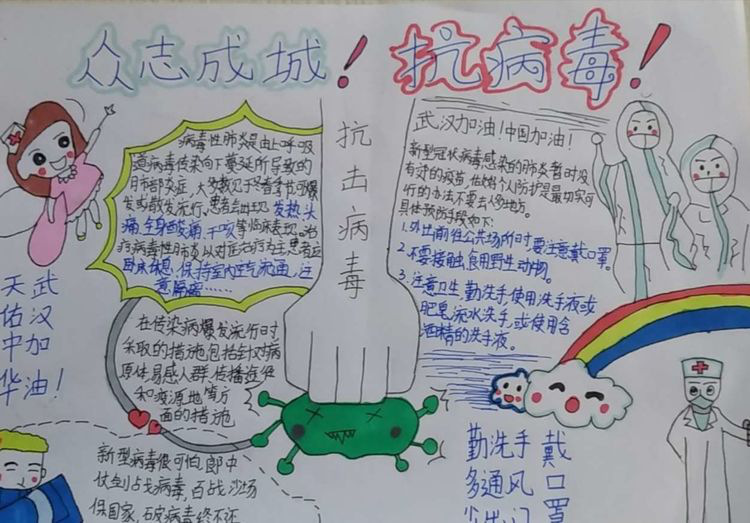 众志成城！抗病毒！
病毒性肺炎是由上呼吸
道病毒传染向下蔓延所导致的
肺部炎症，大多数见于冬春季节可爆
发或散发流行。患者会出现发热、头
痛、全身酸痛、干咳等临床表现。治
疗病毒性肺炎以对症治疗为主,患者应
卧床休息,保持室内空气流通,注
意隔离……
抗击病毒
武汉加油！中国加油！
新型冠状病毒感染的肺炎暂时没
有对的疫苗,
行的办法不要去人多地方。
具体预防手段如下:
1.外出前往公共场所时要注意戴口罩。
2.不要接触,食用野生动物。
3.注意卫生,勤洗手,使用洗手液或
肥皂,流水洗手,或使用含
酒精的洗手液。
武汉加油！
天佑中华
在传染病爆发流行时
采取的措施,包括针对病
原体,易感人群,传播途径
和疫源地等方
面的措施
新型病毒很可怕,郎中
仗剑战病毒,百战沙场
保国家,破病毒终不还
勤洗手
多通风
少出门
戴口罩